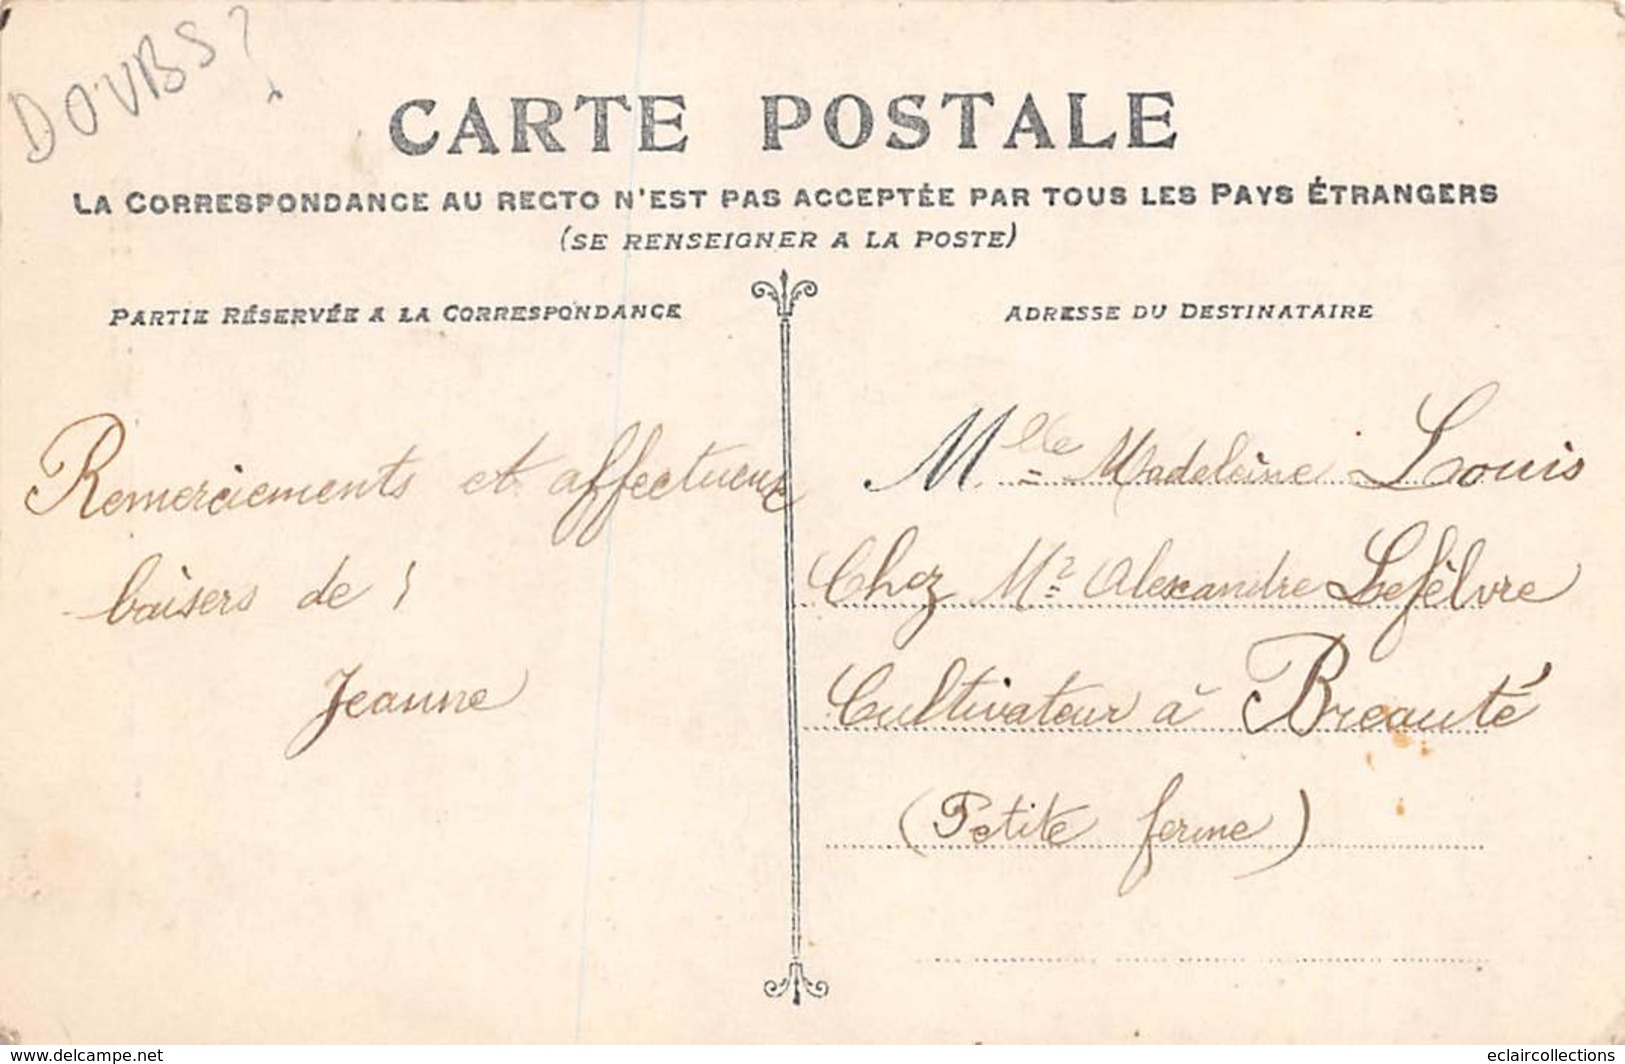 DOUBS ?
CARTE POSTALE
LA CORRESPONDANCE AU RECTO N'EST PAS ACCEPTÉE PAR TOUS LES PAYS ÉTRANGERS
(SE RENSEIGNER A LA POSTE)
PARTIE RÉSERVÉE A LA CORRESPONDANCE
Remerciements et affectueux
baisers de
Jeanne
ADRESSE DU DESTINATAIRE
Mlle Madeleine Louis
Chez Mr Alexandre Lefèbvre
Cultivateur à Breauté
(Petite ferme)
www.delcampe.net
eclaircollections